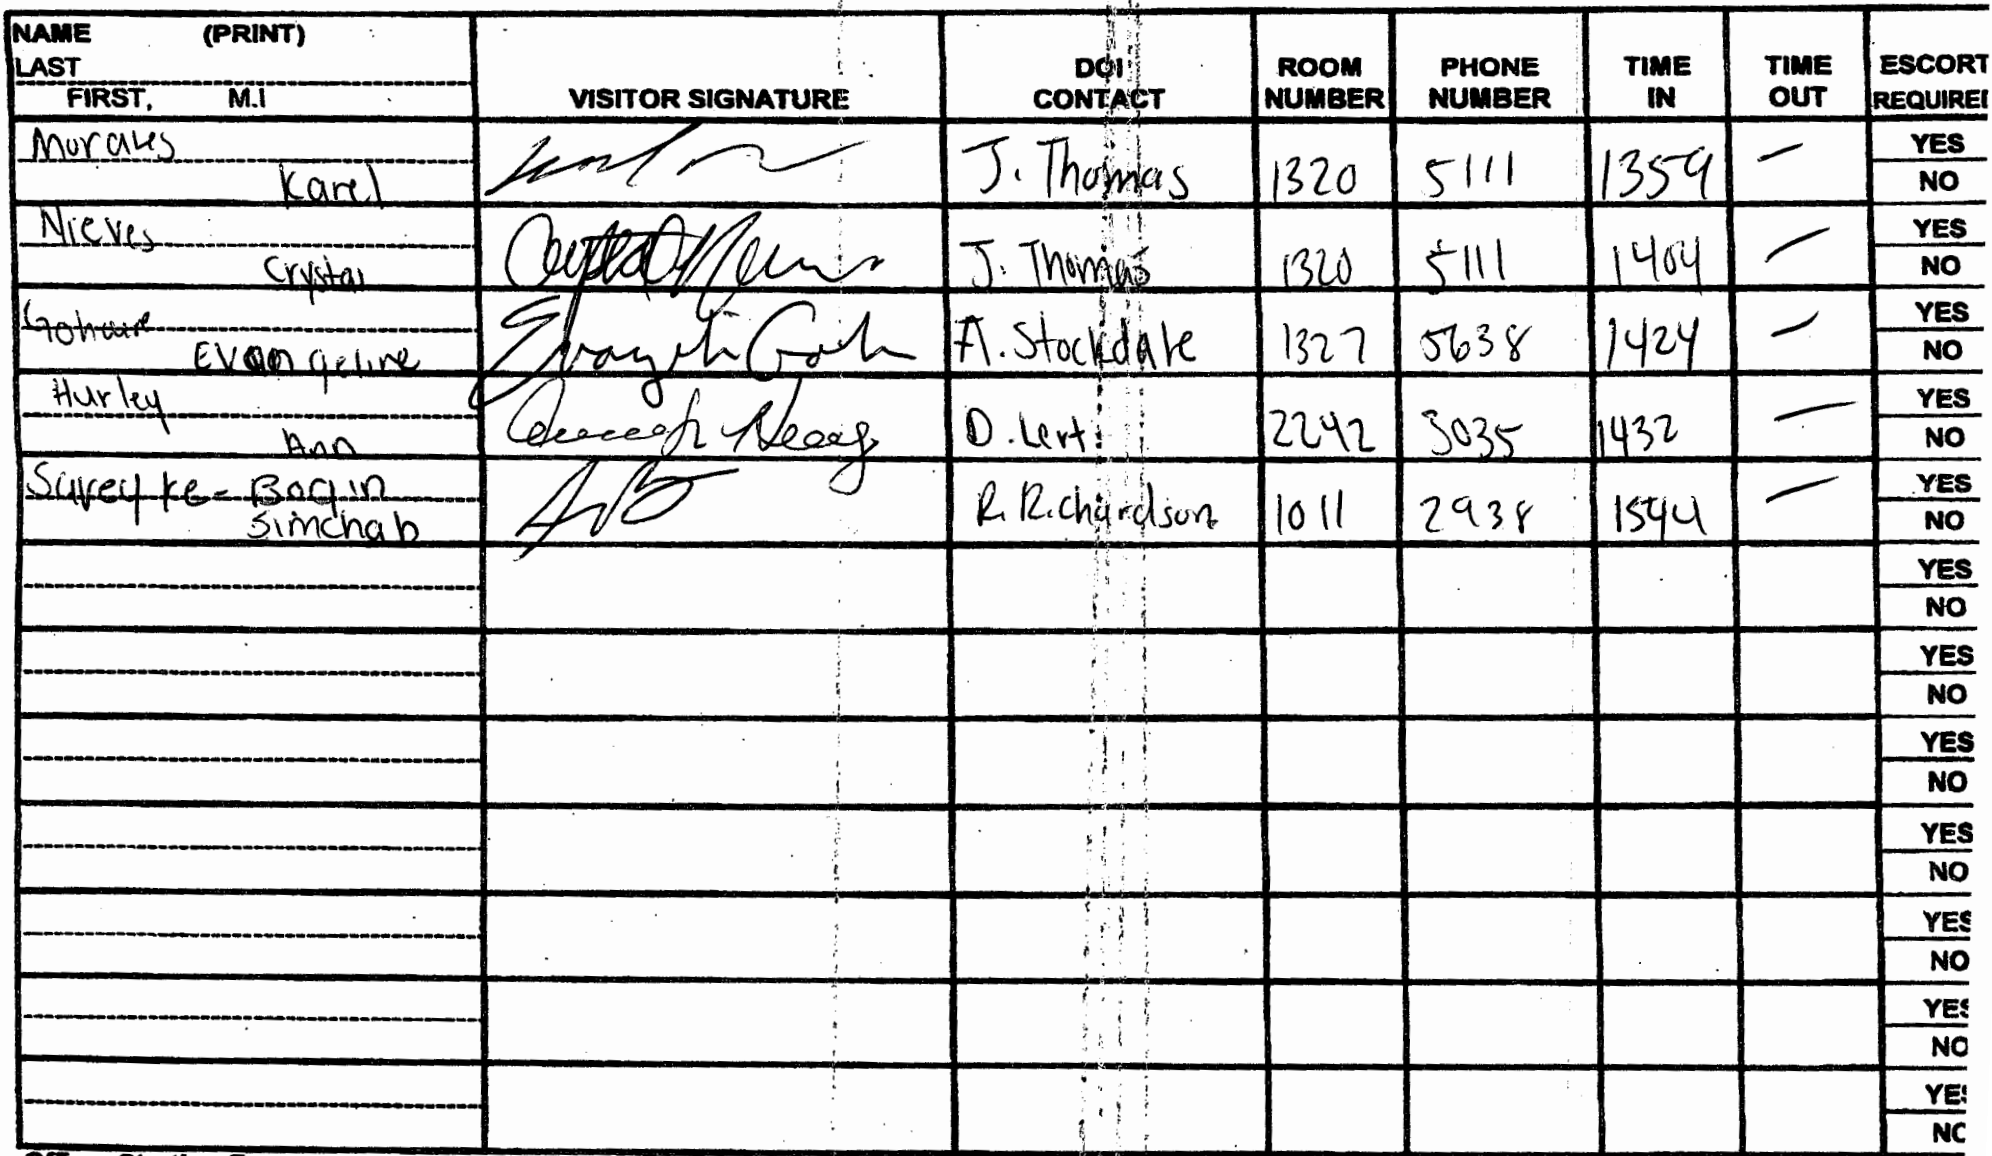 NAME (PRINT)
LAST
FIRST, M.I
VISITOR SIGNATURE
DOI
CONTACT
ROOM
NUMBER
PHONE
NUMBER
TIME
IN
TIME
OUT
ESCORT
REQUIRE
Morales
Karel
J. Thomas 1320 5111 1359 — YES
NO
Nieves
Crystal
J. Thomas 1320 5111 1404 — YES
NO
Evangeline
A. Stockdale 1327 5638 1424 — YES
NO
Hurley
Ann
D. Lert 2242 3035 1432 — YES
NO
Bogin
Simchah
R. Richardson 1011 2938 1544 — YES
NO
YES
NO
YES
NO
YES
NO
YES
NO
YES
NO
YES
NO
YES
NO